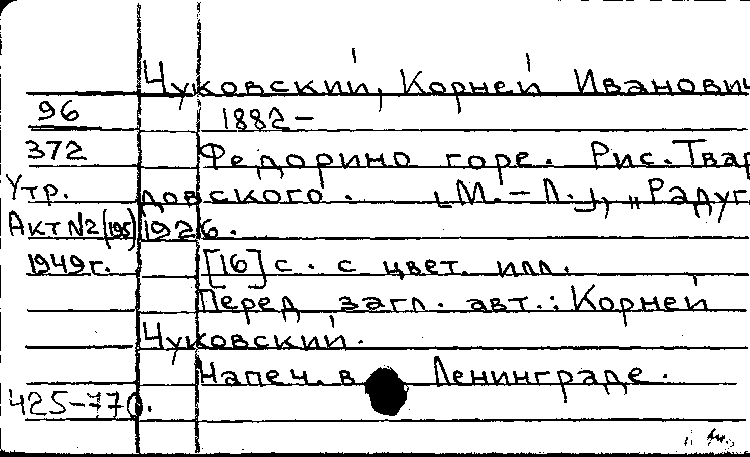 Чуковский, Корней Иванович
96 1882 –
372 Федорино горе. Рис. Твар
Утр. довского. [М. – Л.], „Радуг
Акт №2 (195) 1926.
1949 г. [16] с. с цвет. илл.
Перед загл. авт.: Корней
Чуковский.
Напеч. в Ленинграде.
425–770.